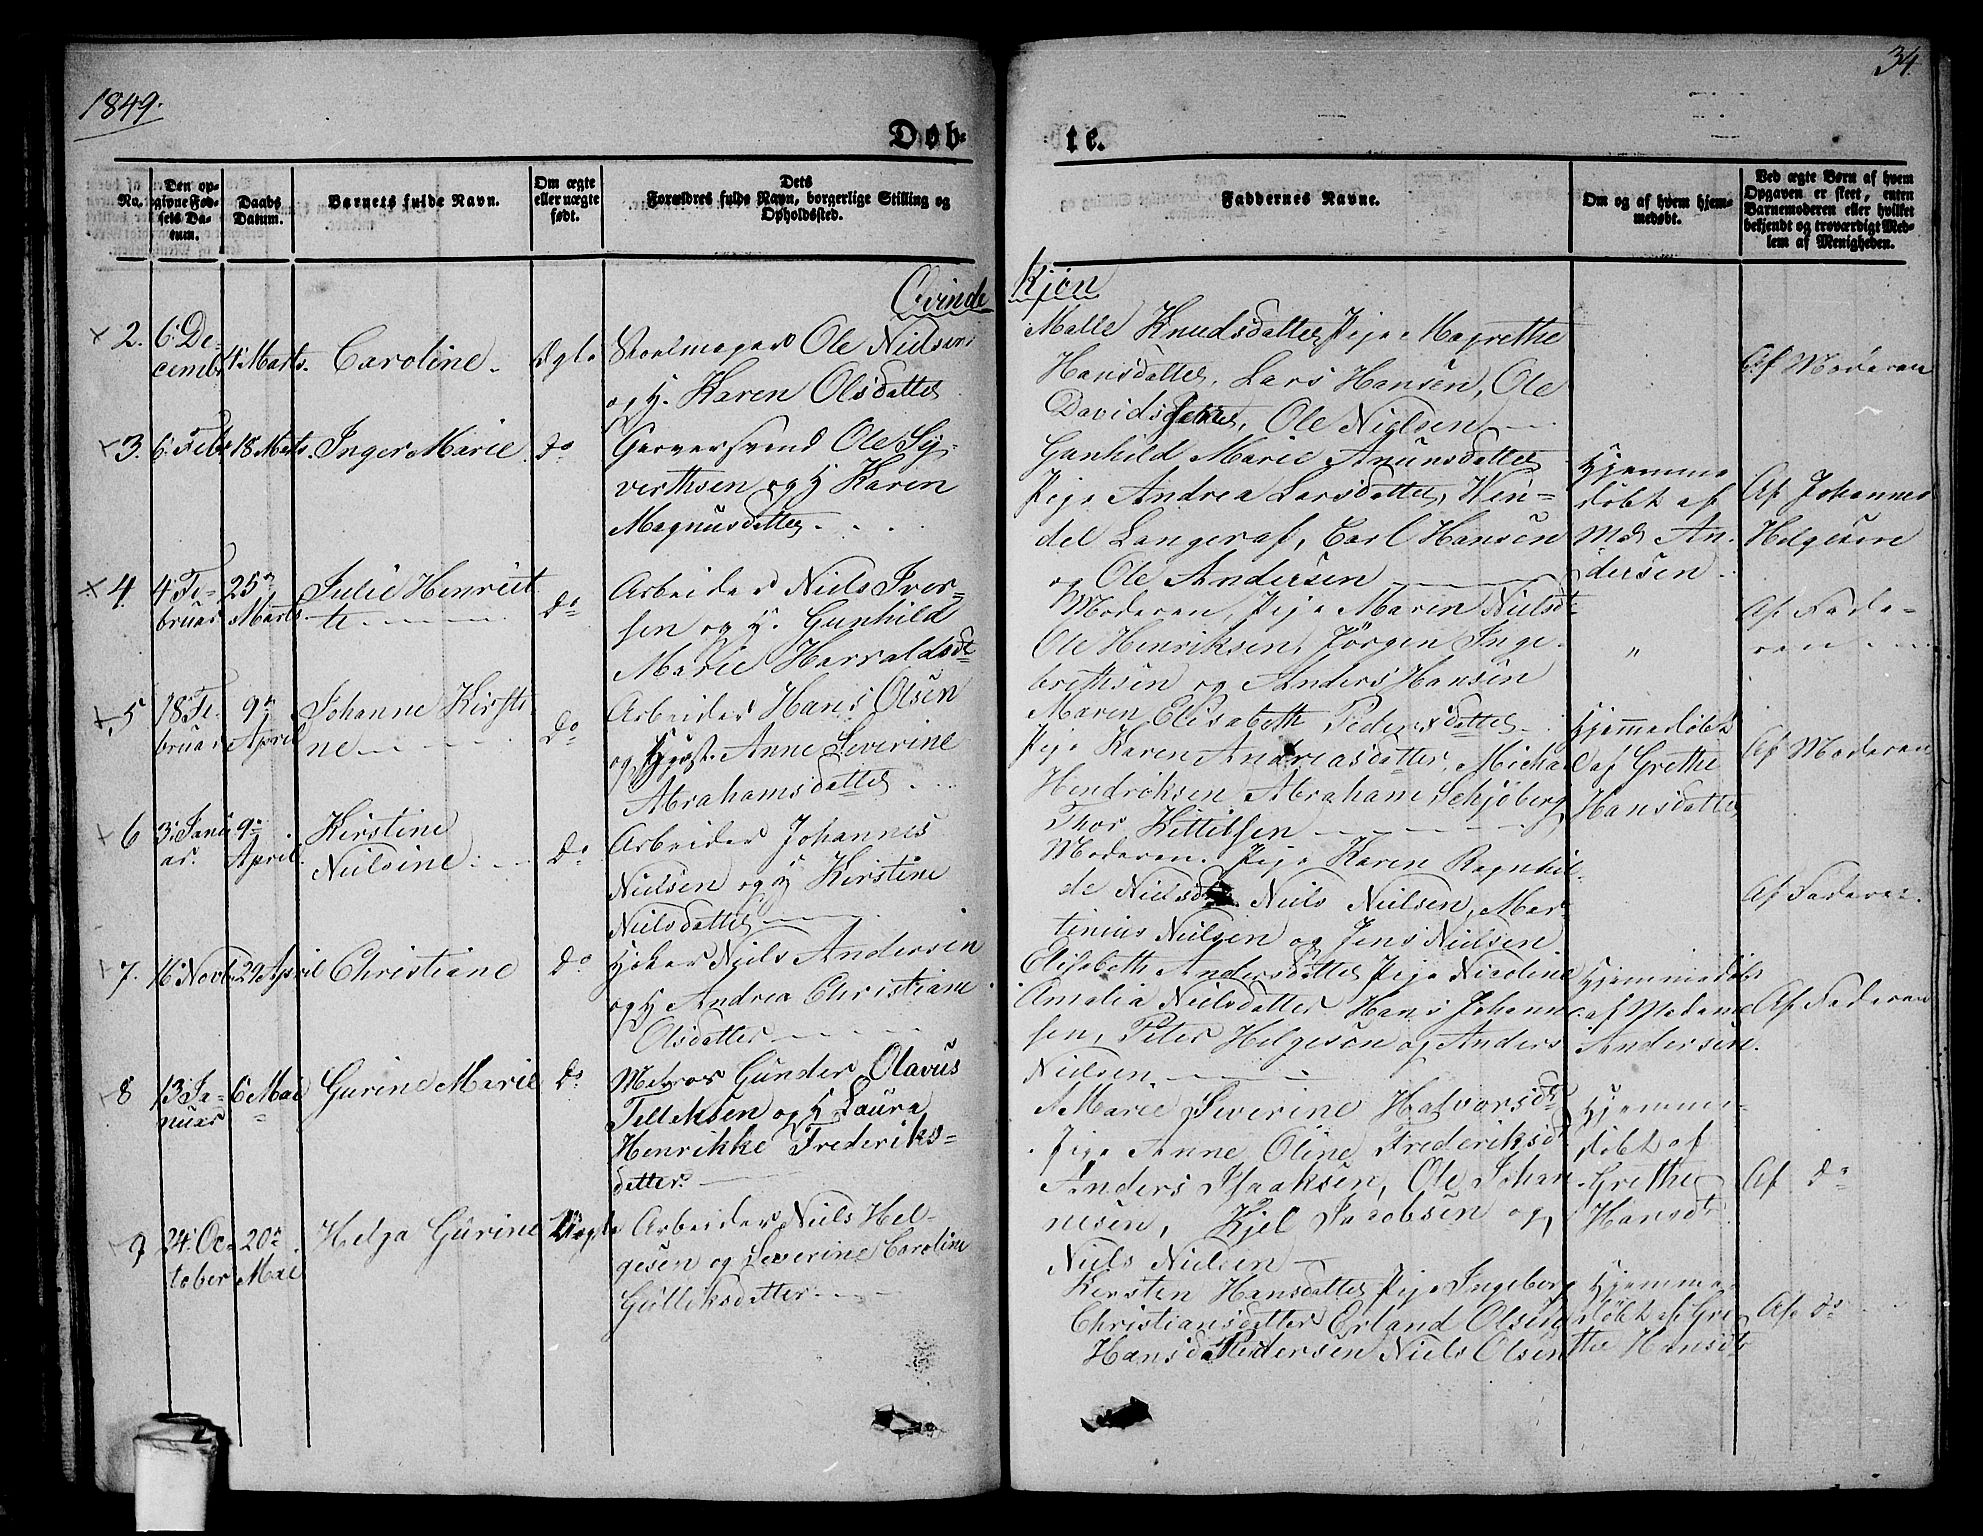 1849.
34.
Døb-
te.
No.
Den op-
givne Fød-
sels Da-
tum.
Daabs
Datum.
Barnets fulde Navn.
Om ægte
eller uægte
født.
Dets
Forældres fulde Navn, borgerlige Stilling og
Opholdssted.
Faddernes Navne.
Om og af hvem hjem-
medøbt.
Ved ægte Børn af hvem
Opgaven er skeet, enten
Barnemoderen eller hvilket
bekjendt og troværdigt Med-
lem af Menigheden.
Qvinde
Kjøn
2.
6 De-
cembr
4 Marts.
Caroline.
Ægte
Stolmager Ole Nielsen
og H. Karen Olsdatter
Malle Knudsdatter, Pige Magrethe
Hansdatter, Lars Hansen, Ole
Davidsen, Ole Nielsen
Af Moderen
3.
6 Febr
18 Marts.
Inger Marie
Do
Garversvend Ole Sy-
verthsen og H Karen
Magnusdatter.
Gunhild Marie Amunsdatter
Pige Andrea Larsdatter, Wen-
del Langeraf, Carl Hansen
og Ole Andersen
Hjemme
døbt af
Md An-
dersen.
Af Johannes
Helgesen
4.
4 Fe-
bruar
25
Marts.
Julie Henriet
te
Do
Arbeider Niels Iver-
sen og H. Gunhild
Marie Harraldsdt
Moderen, Pige Maren Nielsdt
Ole Henriksen, Jørgen Inge-
brethsen og Anders Hansen
"
Af Fade-
ren
5
18 Fe-
bruar
9
April
Johanne Kirsti
ne
Do
Arbeider Hans Olsen
og Hust. Anne Severine
Abrahamsdatter.
Maren Elisabeth Pedersdatter
Pige Karen Andreasdatter, Micha
Hendriksen Abraham Schjøberg
Thor Kittilsen
Hjemmedøbt
af Grethe
Hansdatter
Af Moderen
6
3 Janu
ar.
9
April.
Kirstine
Nielsine
Do
Arbeider Johannes
Nielsen og H Kirstine
Nielsdatter
Moderen. Pige Karen Ragnhil-
de Nielsdt Niels Nielsen, Mar-
tinius Nielsen og Jens Nielsen.
Af Faderen.
7.
16 Novb.
29 April
Christiane
Do
Høker Niels Andersen
og H Andrea Christiane
Olsdatter
Elisabeth Andersdatter Pige Nicoline
Amalia Nielsdatter Hans Johanne-
sen, Peter Helgesen og Anders
Nielsen.
Hjemmedøbt
af Madame
Andersen.
Af Faderen
8
13 Ja-
nuar
6 Mai
Gurine Marie
Do
Matros Gunder Olavus
Telleksen og H Laura
Henrikke Frederiks-
datter.
Marie Severine Halvorsdt
Pige Anne Oline Frederiksdt
Anders Isaaksen, Ole Johan-
nesen, Kjel Jacobsen og
Niels Nielsen
Hjemme-
døbt af
Grethe
Hansdt
Af Do
9
24 Oc-
tober
20
Mai
Helga Gurine
Uægte
Arbeider Niels Hel-
gesen og Severine Caroline
Gulliksdatter
Kirsten Hansdatter Pige Ingeborg
Christiansdatter Erland Olsen
Hans Pedersen Niels Olsen
Hjemme-
døbt af Gre
the Hansdt
Af do